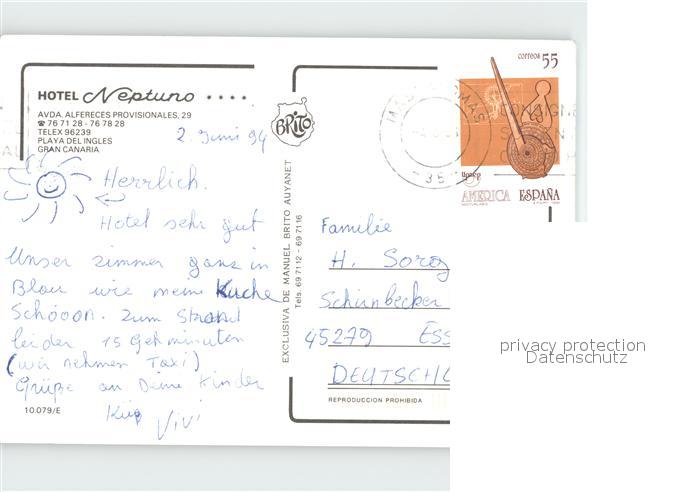 HOTEL Neptuno ••••
AVDA. ALFERECES PROVISIONALES, 29
☎ 76 71 28 - 76 78 28
TELEX 96239
PLAYA DEL INGLES
GRAN CANARIA
2. Juni 94
Herrlich.
Hotel sehr gut
Unser zimmer ganz in
Blau wie meine Küche
Schööon. Zum Strand
leider 15 Gehminuten
(wir nehmen Taxi)
Grüße an Deine Kinder
Vivi
10.079/E
BRITO
EXCLUSIVA DE MANUEL BRITO AUYANET
Tels. 69 7112 - 69 7116
correos 55
AMERICA ESPAÑA
Familie
H.
Schirnbecker
45279 ESS
DEUTSCHL
REPRODUCCION PROHIBIDA
privacy protection
Datenschutz